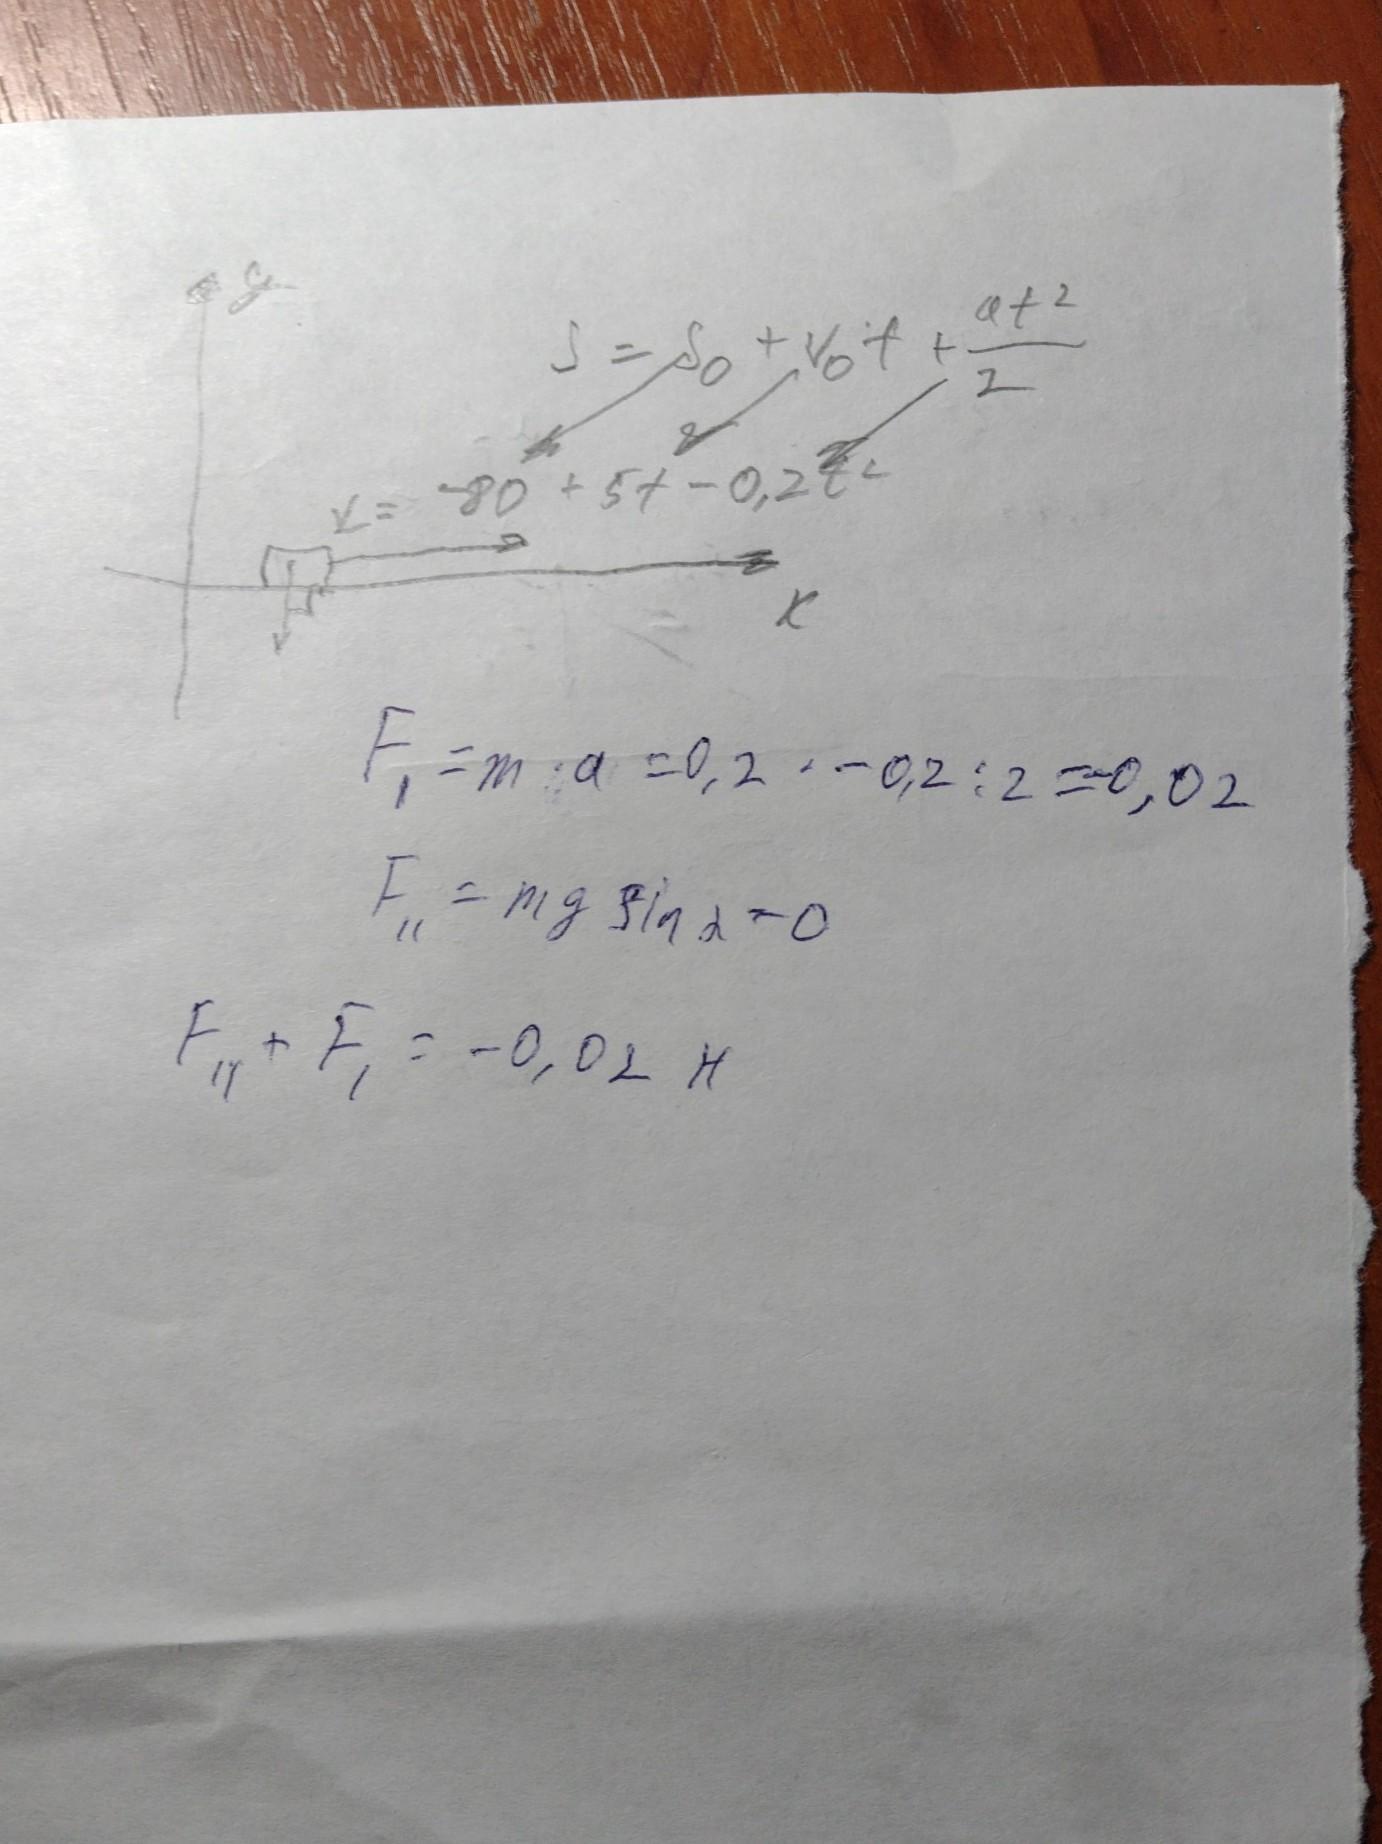 y
S = S₀ + V₀ · t + at²/2
x = -80 + 5t - 0,2t²
x
F₁ = m · a = 0,2 · -0,2 : 2 = -0,02
F₁₁ = mg sin α = 0
F₁₁ + F₁ = -0,02 Н